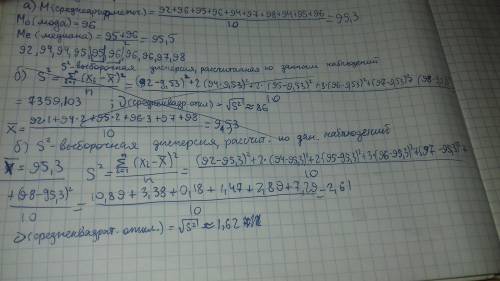 а) M(среднеарифметич) = 92+96+95+96+94+97+98+94+95+96 / 10 = 95,3
Mo (мода) = 96
Me (медиана) = 95+96 / 2 = 95,5
92, 94, 94, 95, 95, 96, 96, 96, 97, 98
S²-выборочная дисперсия, рассчитанная по данным наблюдений
б) S² = Σ (Xi-X̄)² / n = (92-9,53)²+2(94-9,53)²+2·(95-9,53)²+3·(96-9,53)²+(97-9,53)²+(98-9,53)² / 10
= 7359,103 ; √S² ≈ 86
X̄ = 92·1+94·2+95·2+96·3+97+98 / 10 = 9,53
б) S²-выборочная дисперсия, рассчит. по дан. наблюдений
X̄ = 95,3
S² = Σ (Xi-X̄)² / n = (92-95,3)²+2·(94-95,3)²+2(95-95,3)²+3·(96-95,3)²+(97-95,3)²+
+(98-95,3)² / 10 = 10,89+3,38+0,18+1,47+2,89+7,29 / 10 = 2,61
(среднеквадрат. откл.) = √S² ≈ 1,62